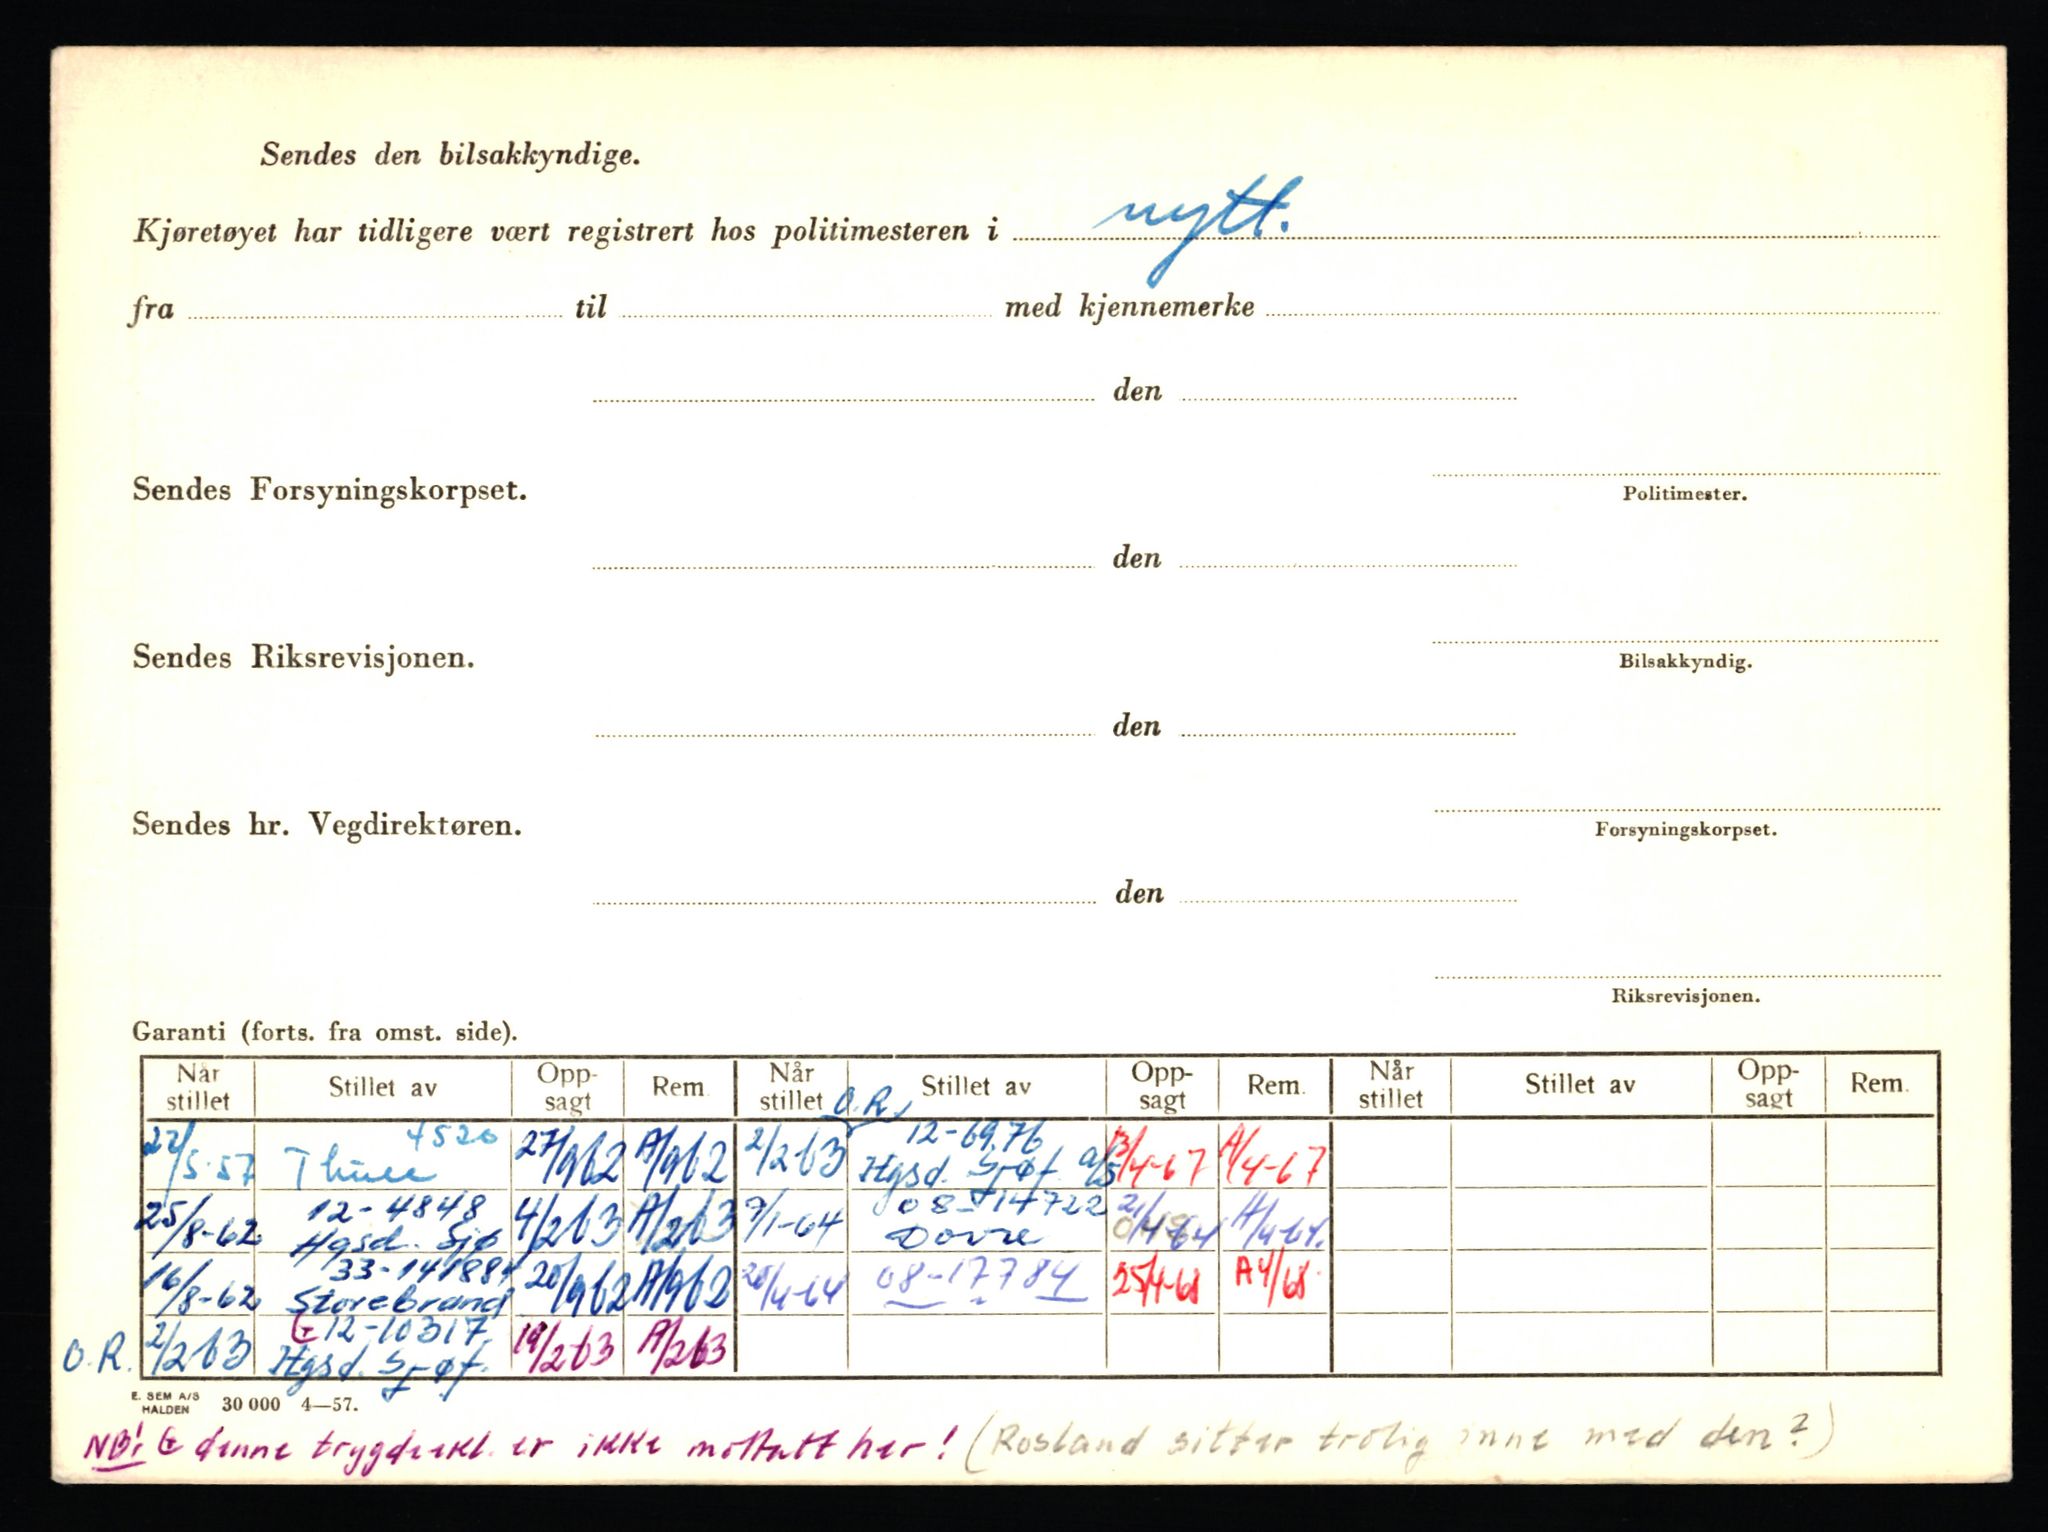 Sendes den bilsakkyndige.
Kjøretøyet har tidligere vært registrert hos politimesteren i nytt.
fra til med kjennemerke
den
Sendes Forsyningskorpset.
Politimester.
den
Sendes Riksrevisjonen.
Bilsakkyndig.
den
Sendes hr. Vegdirektøren.
Forsyningskorpset.
den
Riksrevisjonen.
Garanti (forts. fra omst. side).
Når stillet Stillet av Opp-sagt Rem. Når stillet Stillet av Opp-sagt Rem. Når stillet Stillet av Opp-sagt Rem.
O.R.
4520 12-6976
22/5-57 27/962 A/962 2/2-63 Hgsd. Sjøf. a/s 13/4-67 A/4-67
12-4848 08-14722
25/8-62 Hgsd. Sjø 4/263 A/263 9/1-64 Dovre 21/4-64 A/4-64.
33-141884
16/8-62 Storebrand 20/962 A/962 20/4-64 08-17784 25/4-68 A4/68
G 12-10317
O.R. 2/263 Hgsd. Sjøf. 19/263 A/263
E. SEM A/S
HALDEN 30 000 4—57.
NB! G denne trygdeekl. er ikke mottatt her! (Rosland sitter trolig inne med den?)